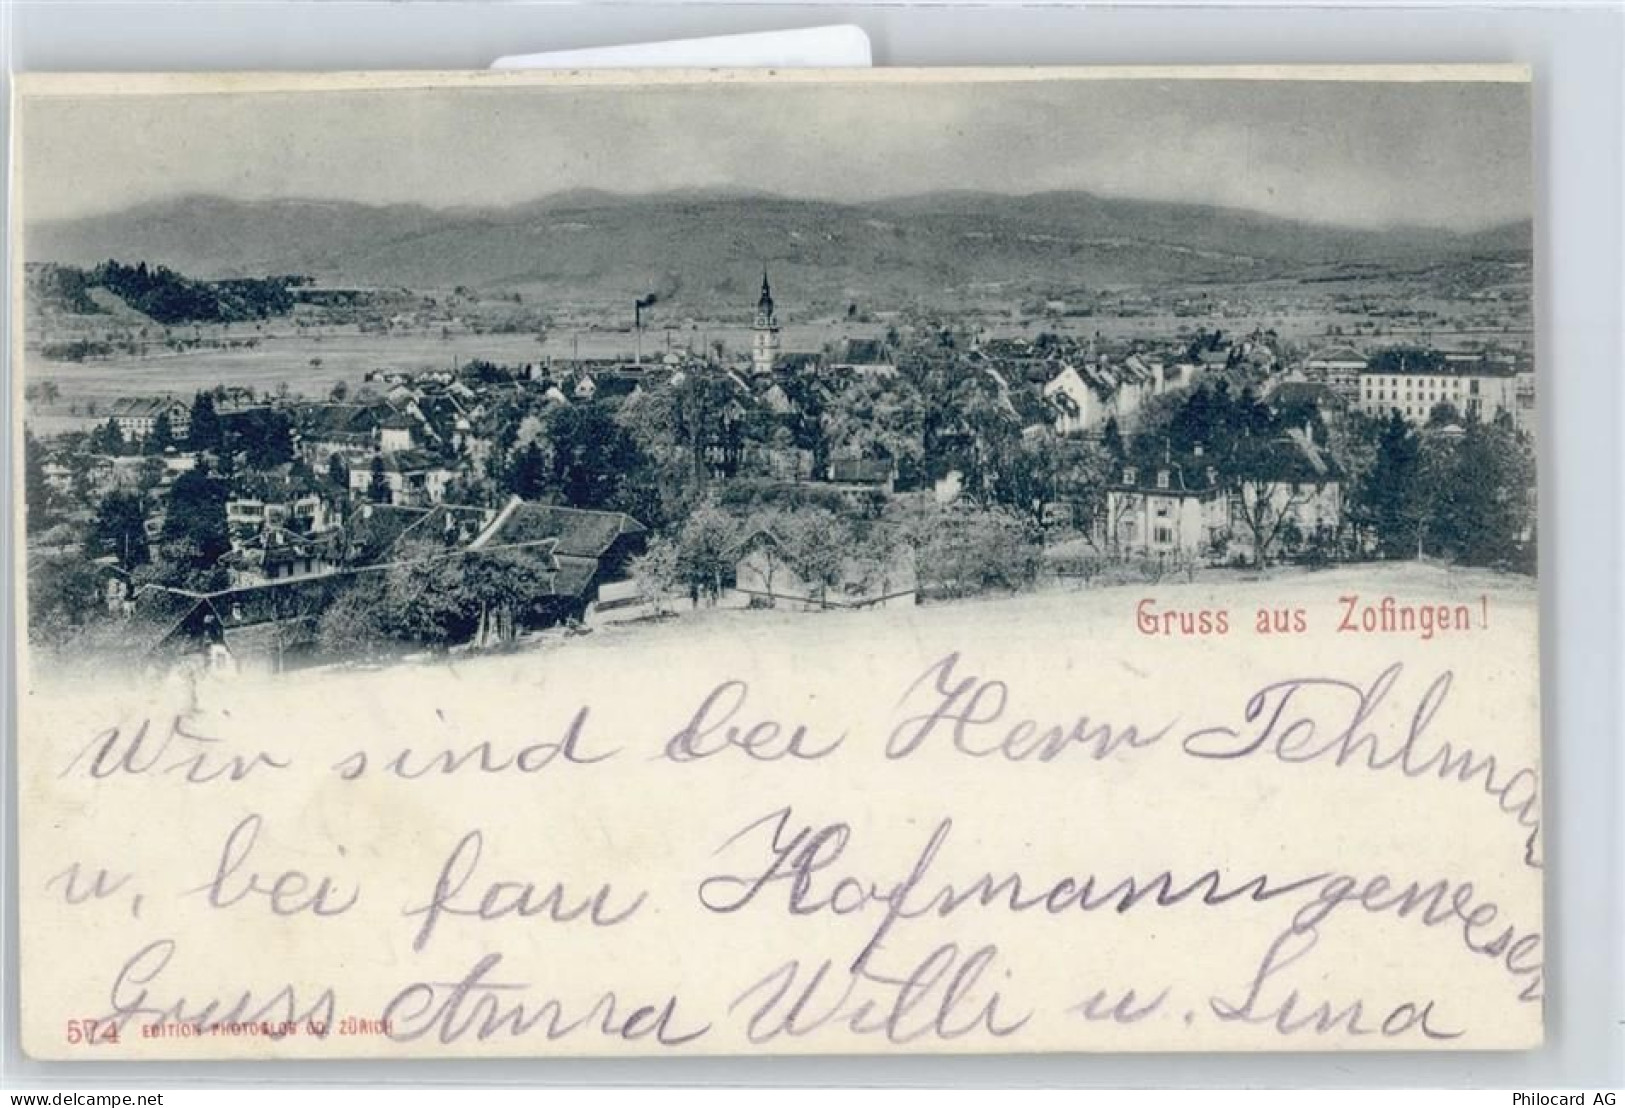 Gruss aus Zofingen!
Wir sind bei Herr Tehlman
u, bei frau Hofmann gewesen
Gruss Anna Willi u. Lina
574 EDITION PHOTOGLOB CO. ZÜRICH
Philocard AG
www.delcampe.net